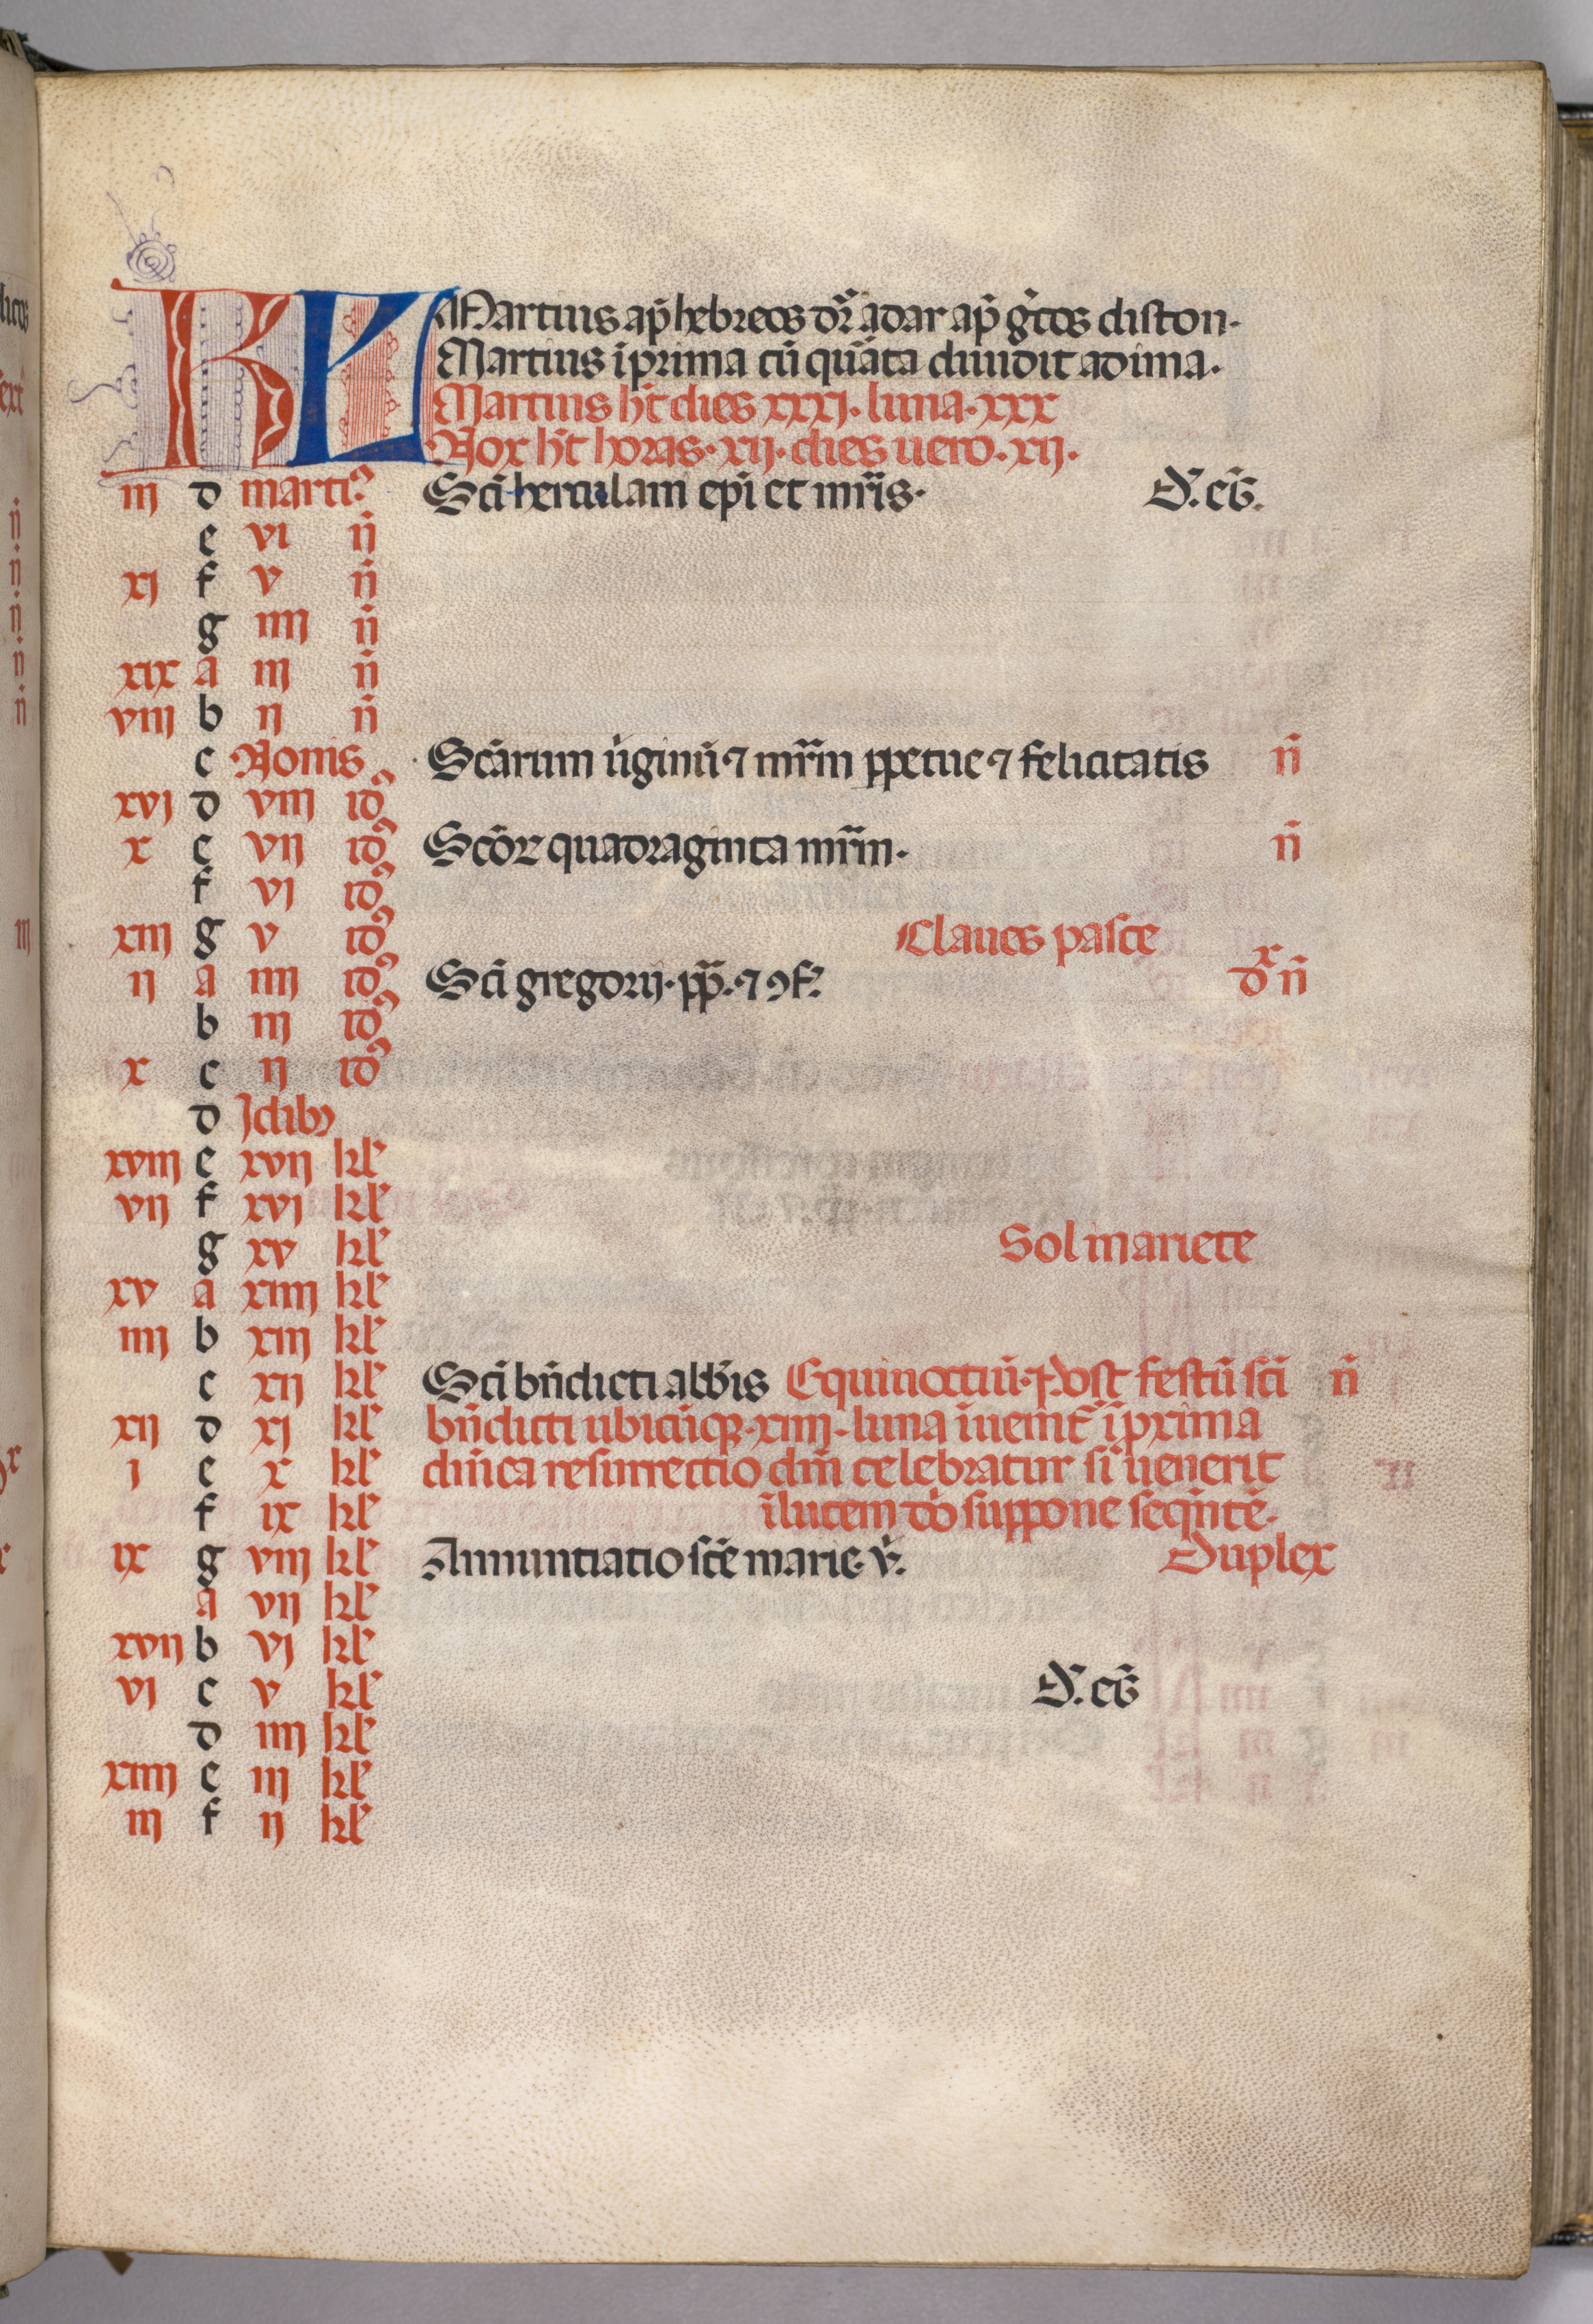 KL Martius ap̄ hebreos dr̄ adar ap̄ gͥcos diston.
Martius ī prima cū quāta diuidit adima.
Martius h̄t dies xxxj. luna. xxx
Nox h̄t horas. xij. dies uero. xij.
iij d marti⁹ Sc̄i herculani ep̄i et mr̄is. D'. eḡ.
e vi n̄
xj f v n̄
g iiij n̄
xix a iij n̄
viij b ij n̄
c Nonis Sc̄arum ūginū ⁊ mr̄m ꝑpetue ⁊ felicitatis n̄
xvj d viij id⁹
x e vij id⁹ Sc̄oꝝ quadraginta mr̄m. n̄
f vj id⁹
xiij g v id⁹ Claues pasce
ij a iiij id⁹ Sc̄i gregorij. pp̄. ⁊ ꝯf. dˣ n̄
b iij id⁹
x c ij id⁹
d Jdibꝫ
xviij e xvij kl'
vij f xvj kl'
g xv kl' Sol in ariete
xv a xiiij kl'
iiij b xiij kl'
c xij kl' Sc̄i bn̄dicti abb̄is Equinoctiū. Post festū sc̄i n̄
xij d xj kl' bn̄dicti ubicūqꝫ. xiiij. luna īuenit̄ ī prīma
j e x kl' dn̄ica resurrectio dn̄i celebratur si uenerit
f ix kl' ī lucem do͛ suppone seqn̄tē.
ix g viij kl' Annuntiatio sc̄e marie. v̄. Duplex
a vij kl'
xvij b vj kl'
vj c v kl' D'. eḡ
d iiij kl'
xiiij e iij kl'
iij f ij kl'